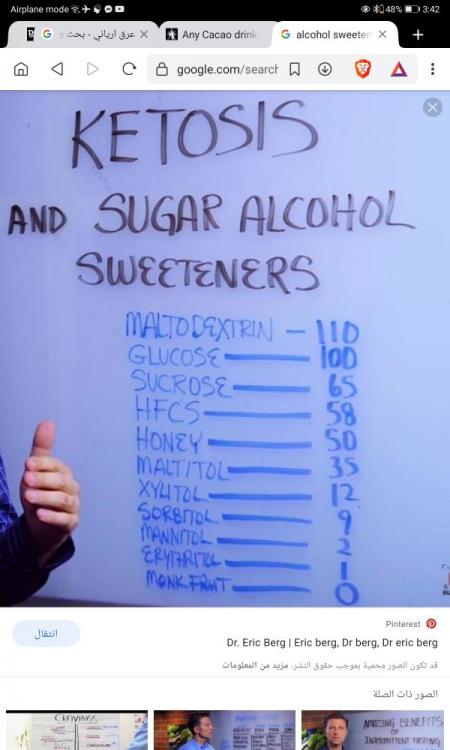 Airplane mode 48% 3:42
عرق ارباني - بحث
Any Cacao drink
alcohol sweeten
google.com/search
KETOSIS
AND SUGAR ALCOHOL
SWEETENERS
MALTODEXTRIN — 110
GLUCOSE — 100
SUCROSE — 65
HFCS — 58
HONEY — 50
MALTITOL — 35
XYLITOL — 12
SORBITOL — 9
MANNITOL — 2
ERYTHRITOL — 1
MONK FRUIT — 0
Pinterest
انتقال
Dr. Eric Berg | Eric berg, Dr berg, Dr eric berg
قد تكون الصور محمية بموجب حقوق النشر. مزيد من المعلومات
الصور ذات الصلة
CRAVINGS
AMAZING BENEFITS
OF
INTERMITTENT FASTING